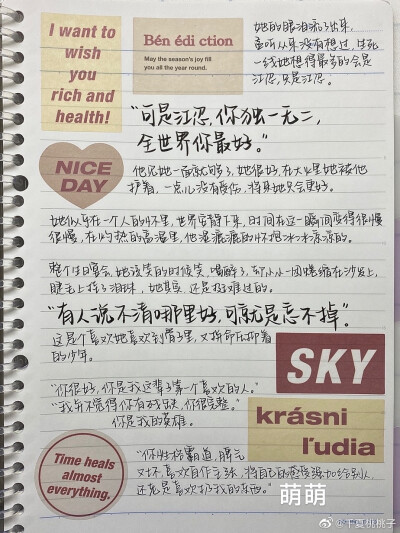 I want to
wish
you
rich and
health!
Bén édi ction
May the season's joy fill
you all the year round.
她的眼泪流了出来,
孟听从来没有想过,生死
一线她想得最多的会是
江忍,只是江忍。
“可是江忍,你独一无二,
全世界你最好。”
NICE
DAY
他见她一面就够了,她很好,在大火里她被他
护着,一点儿没有受伤,将来她只会更好。
她似乎在一个人的怀里,世界安静下来,时间在这一瞬间变得很慢
很慢,在灼热的高温里,他湿漉漉的怀抱冰冰凉凉的。
整个生日宴会,她该笑的时候笑,喝醉了,却小小一团蜷缩在沙发上,
睫毛上挂了泪珠,她其实,还是挺难过的。
“有人说不清哪里好,可就是忘不掉”。
这是个喜欢她喜欢到骨子里,又拼命压抑着
的少年。
SKY
“你很好,你是我这辈子第一个喜欢的人。”
“我并不觉得你有残缺,你很完整。”
你是我的英雄。
krásni
ľudia
Time heals
almost
everything.
“你性格霸道,脾气
又坏,喜欢自作主张,将自己的感受强加给别人,
还老是喜欢扔我的东西。”
萌萌
@千夏桃桃子